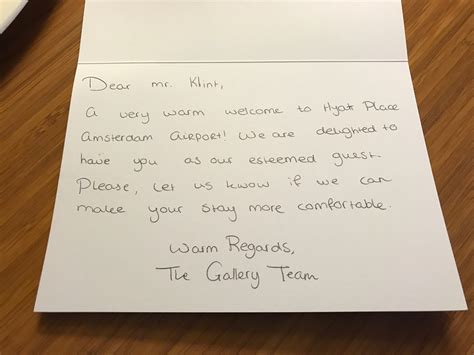 Dear mr. Klint,
A very warm welcome to Hyatt Place
Amsterdam Airport! We are delighted to
have you as our esteemed guest.
Please, let us know if we can
make your stay more comfortable.
Warm Regards,
The Gallery Team